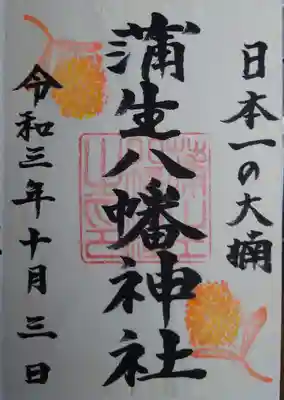 日本一の大楠
蒲生八幡神社
令和三年十月三日